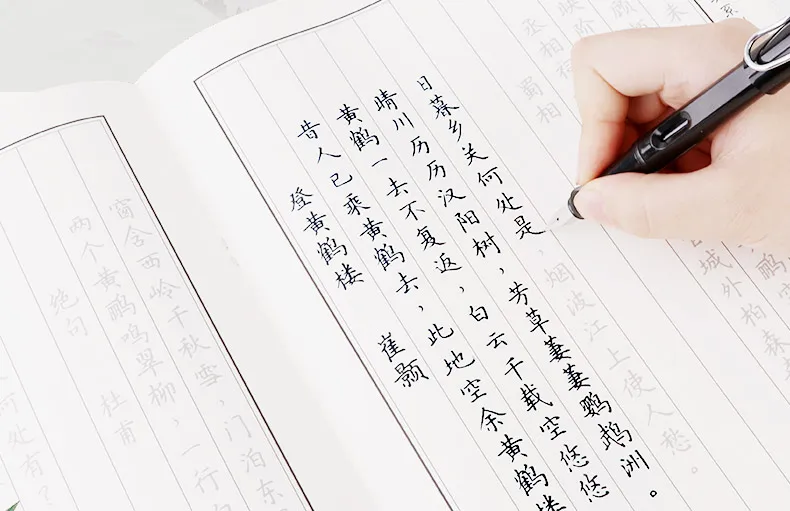 何处有？
绝句 杜甫
两个黄鹂鸣翠柳，一行白
窗含西岭千秋雪，门泊东
登黄鹤楼 崔颢
昔人已乘黄鹤去，此地空余黄鹤楼
黄鹤一去不复返，白云千载空悠悠
晴川历历汉阳树，芳草萋萋鹦鹉洲。
日暮乡关何处是，烟波江上使人愁。
蜀相
丞相祠
城外柏森
映阶